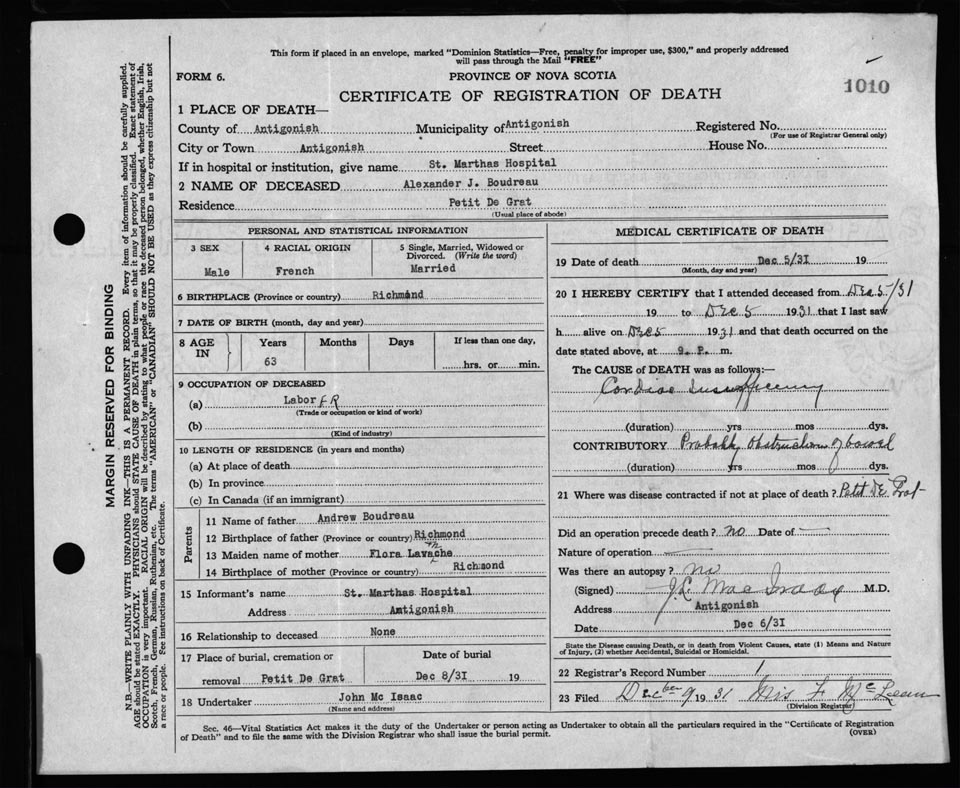 This form if placed in an envelope, marked "Dominion Statistics—Free, penalty for improper use, $300," and properly addressed
will pass through the Mail "FREE"
FORM 6.
PROVINCE OF NOVA SCOTIA
1010
CERTIFICATE OF REGISTRATION OF DEATH
1 PLACE OF DEATH—
County of Antigonish Municipality of Antigonish Registered No.
(For use of Registrar General only)
City or Town Antigonish Street House No.
If in hospital or institution, give name St. Marthas Hospital
2 NAME OF DECEASED Alexander J. Boudreau
Residence Petit De Grat
(Usual place of abode)
PERSONAL AND STATISTICAL INFORMATION
3 SEX 4 RACIAL ORIGIN 5 Single, Married, Widowed or
Divorced. (Write the word)
Male French Married
6 BIRTHPLACE (Province or country) Richmond
7 DATE OF BIRTH (month, day and year)
8 AGE IN Years Months Days If less than one day,
63 hrs. or min.
9 OCCUPATION OF DECEASED
(a) Laborer
(Trade or occupation or kind of work)
(b)
(Kind of industry)
10 LENGTH OF RESIDENCE (in years and months)
(a) At place of death
(b) In province
(c) In Canada (if an immigrant)
Parents
11 Name of father Andrew Boudreau
12 Birthplace of father (Province or country) Richmond
13 Maiden name of mother Flora Lavache
14 Birthplace of mother (Province or country) Richmond
15 Informant's name St. Marthas Hospital
Address Antigonish
16 Relationship to deceased None
17 Place of burial, cremation or Date of burial
removal Petit De Grat Dec 8/31 19
18 Undertaker John Mc Isaac
(Name and address)
MEDICAL CERTIFICATE OF DEATH
19 Date of death Dec 5/31 19
(Month, day and year)
20 I HEREBY CERTIFY that I attended deceased from Dec 5/31
19 to Dec 5 1931 that I last saw
h alive on Dec 5 1931 and that death occurred on the
date stated above, at 9. P. m.
The CAUSE of DEATH was as follows:—
Cardiac Insufficiency
(duration) yrs mos dys.
CONTRIBUTORY Probably Obstruction of bowel
(duration) yrs mos dys.
21 Where was disease contracted if not at place of death? Petit De Grat
Did an operation precede death? no Date of
Nature of operation
Was there an autopsy? no
(Signed) J. L. MacIsaac M.D.
Address Antigonish
Date Dec 6/31
State the Disease causing Death, or in death from Violent Causes, state (1) Means and Nature
of Injury, (2) whether Accidental, Suicidal or Homicidal.
22 Registrar's Record Number 1
23 Filed Decber 9 1931 Mrs F. McLean
(Division Registrar)
Sec. 46—Vital Statistics Act makes it the duty of the Undertaker or person acting as Undertaker to obtain all the particulars required in the "Certificate of Registration
of Death" and to file the same with the Division Registrar who shall issue the burial permit.
(OVER)
MARGIN RESERVED FOR BINDING
N.B.—WRITE PLAINLY WITH UNFADING INK—THIS IS A PERMANENT RECORD. Every item of information should be carefully supplied.
AGE should be stated EXACTLY. PHYSICIANS should STATE CAUSE OF DEATH in plain terms, so that it may be properly classified. Exact statement of
OCCUPATION is very important. RACIAL ORIGIN will be described by stating to what people or race the deceased person belonged, whether English, Irish,
Scotch, French, German, Russian, Ruthenian, etc. The terms "AMERICAN" or "CANADIAN" SHOULD NOT BE USED as they express citizenship but not
a race or people. See instructions on back of Certificate.